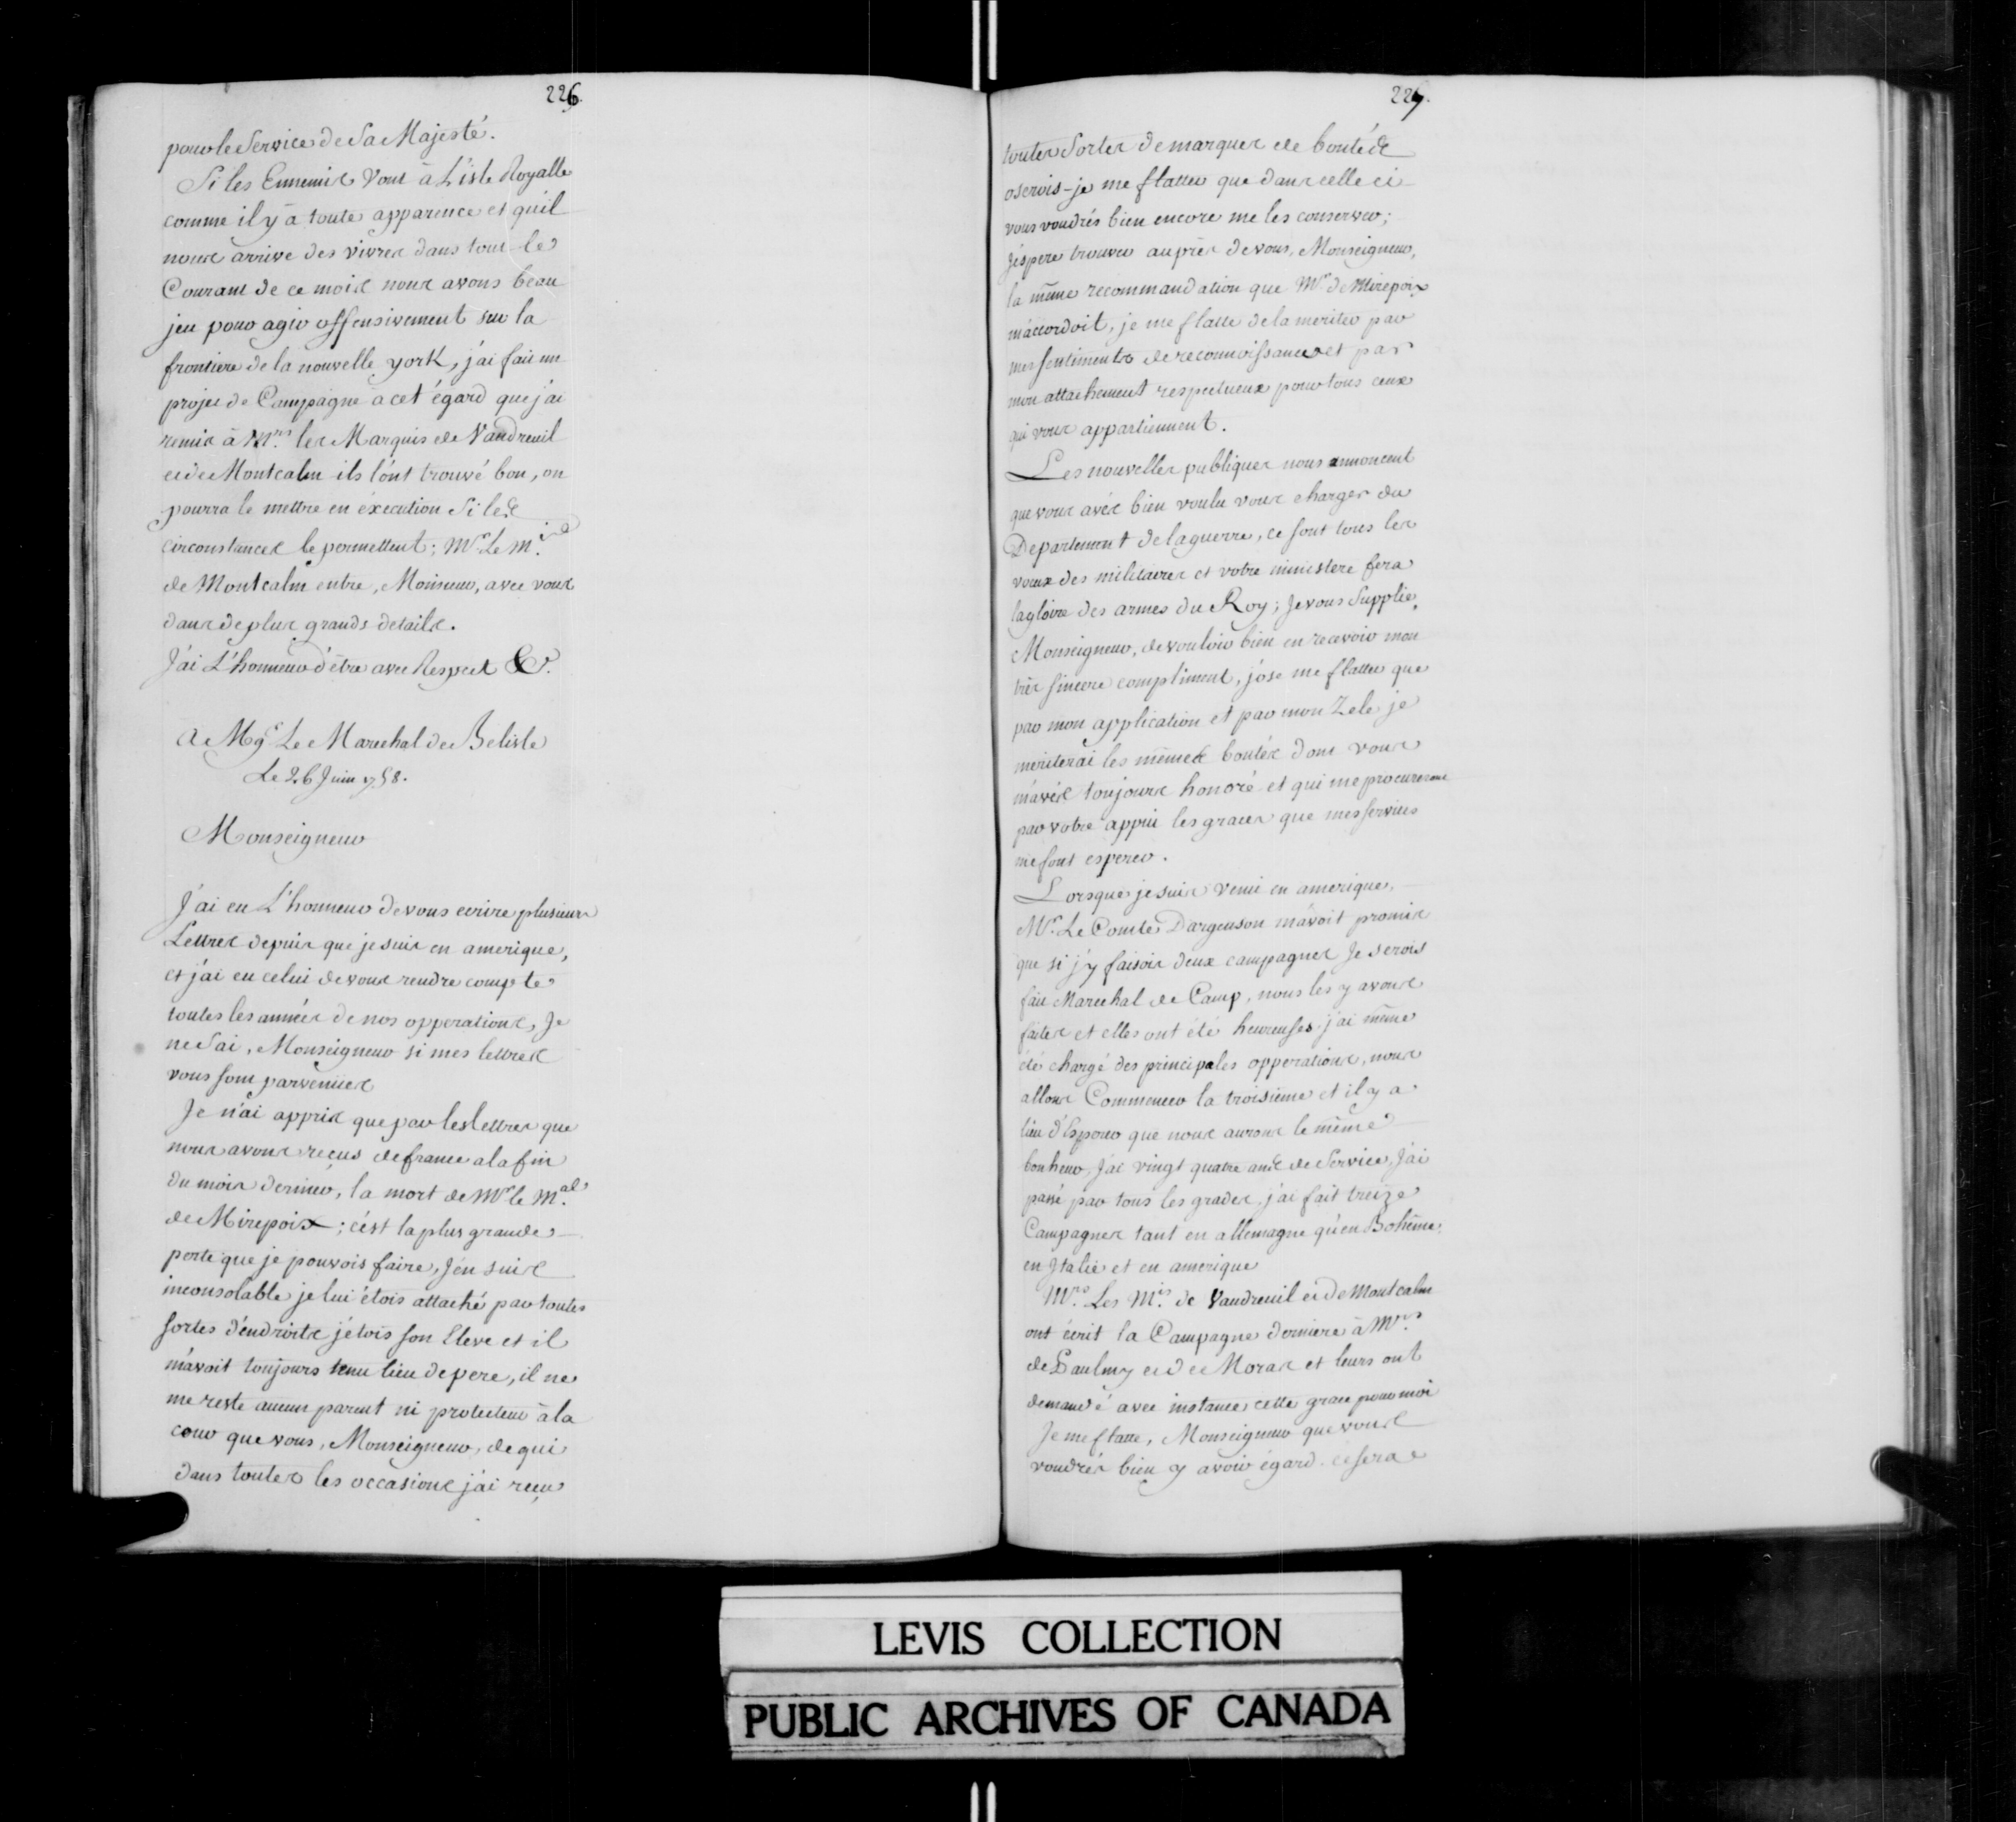 226.
pour le Service de Sa Majesté.
Si les Ennemis Vont à L'isle Royalle
comme il y à toute apparence et quil
nous arrive des vivres dans tout le
Courant de ce mois nous avons beau
jeu pour agir offensivement sur la
frontiere de la nouvelle york, j'ai fait un
projet de Campagne à cet égard que j'ai
remis à Mrs. les Marquis de Vaudreuil
et de Montcalm ils l'ont trouvé bon, on
pourra le mettre en éxecution Si les
circonstances le permettent; Mr. Le M.is
de Montcalm entre, Monsieur, avec vous
dans de plus grands details.
J'ai L'honneur d'être avec Respect &c.
A Mgr Le Marechal de Belisle
Le 26 Juin 1758.
Monseigneur
J'ai eu L'honneur de vous ecrire plusieurs
Lettres depuis que je suis en amerique,
et j'ai eu celui de vous rendre compte
toutes les années de nos opperations, Je
ne Sai, Monseigneur si mes lettres
vous sont parvenues
Je n'ai appris que par les lettres que
nous avons reçus de france a la fin
du mois dernier, la mort de Mr. le M.al
de Mirepoix; c'ést la plus grande
perte que je pouvois faire, J'en suis
inconsolable je lui étois attaché par toutes
sortes d'endroits j'étois son Eleve et il
m'avoit toujours tenu lieu de pere, il ne
me reste aucun parent ni protecteur à la
cour que vous, Monseigneur, de qui
dans toutes les occasions j'ai reçu
227.
toutes Sortes de marques de bontés
oserois-je me flatter que dans celle ci
vous voudrés bien encore me les conserver;
J'éspere trouver auprès de vous, Monseigneur,
la même recommandation que Mr. de Mirepoix
m'accordoit, je me flatte de la meriter par
mes sentiments de reconnoissances et par
mon attachement respectueux pour tous ceux
qui vous appartiennent.
Les nouvelles publiques nous annoncent
que vous avés bien voulu vous charger du
Departement de la guerre, ce sont tous les
voeux des militaires et votre ministere fera
la gloire des armes du Roy; Je vous Supplie,
Monseigneur, de vouloir bien en recevoir mon
très sincere compliment, j'ose me flatter que
par mon application et par mon Zele je
meriterai les mêmes bontés dont vous
m'avés toujours honoré et qui me procureront
par votre appui les graces que mes services
me font esperer.
Lorsque je suis venu en amerique,
Mr. Le Comte Dargenson m'avoit promis
que si j'y faisois deux campagnes Je serois
fait Marechal de Camp, nous les y avons
faites et elles ont été heureuses j'ai même
été chargé des principales opperations, nous
allons Commencer la troisieme et il y a
lieu d'Esperer que nous aurons le même
bonheur, J'ai vingt quatre ans de Service, J'ai
passé par tous les grades, j'ai fait treize
Campagnes tant en allemagne qu'en Bohême,
en Italie et en amerique
Mrs. Les M.is de Vaudreuil et de Montcalm
ont écrit la Campagne derniere à Mrs.
de Paulmy et de Moras et leurs ont
demandé avec instances cette grace pour moi
Je me flatte, Monseigneur que vous
voudrés bien y avoir égard. ce sera
LEVIS COLLECTION
PUBLIC ARCHIVES OF CANADA